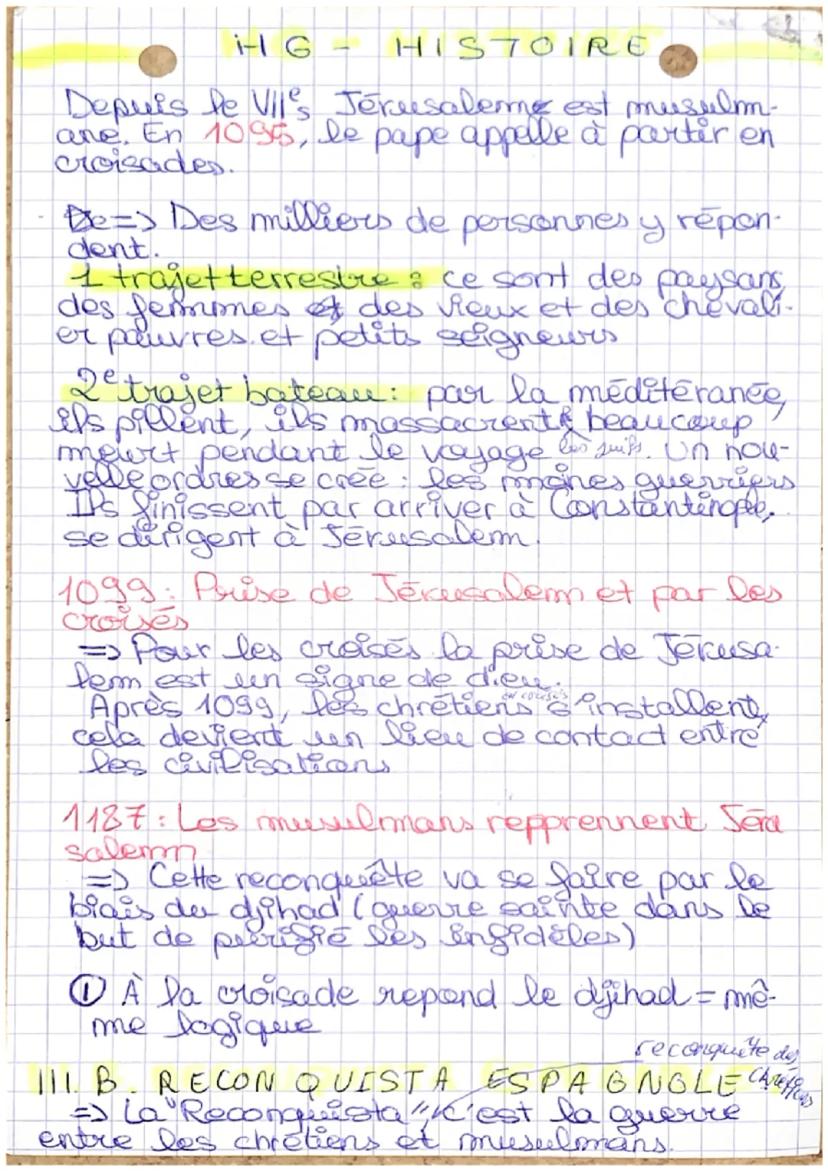 HG - HISTOIRE
Depuis le VIIe s Jérusaleme est musulm-
ane. En 1095, le pape appelle à partir en
croisades.
De => Des milliers de personnes y répon-
dent.
1 trajet terrestre : ce sont des paysans,
des femmes et des vieux et des chevali-
er pauvres. et petits seigneurs
2e trajet bateau : par la méditéranée,
ils pillent, ils massacrent & beaucoup
meurt pendant le voyage les juifs. Un nou-
velle ordres se crée : les moines guerriers
Ils finissent par arriver à Constantinople,
se dirigent à Jérusalem.
1099 : Prise de Jérusalem et par les
croisés
=> Pour les croisés la prise de Jérusa-
lem est un signe de dieu.
Après 1099, les chrétiens s'installent,
cela devient un lieu de contact entre
les civilisations
1187 : Les musulmans repprennent Jéru
salemm
=> Cette reconquête va se faire par le
biais du djihad (guerre sainte dans le
but de purifié les infidèles)
① À la croisade repond le djihad = mê-
me logique
reconquête des
chrétiens
III. B. RECONQUISTA ESPAGNOLE
=> La "Reconquista", c'est la guerre
entre les chrétiens et musulmans.